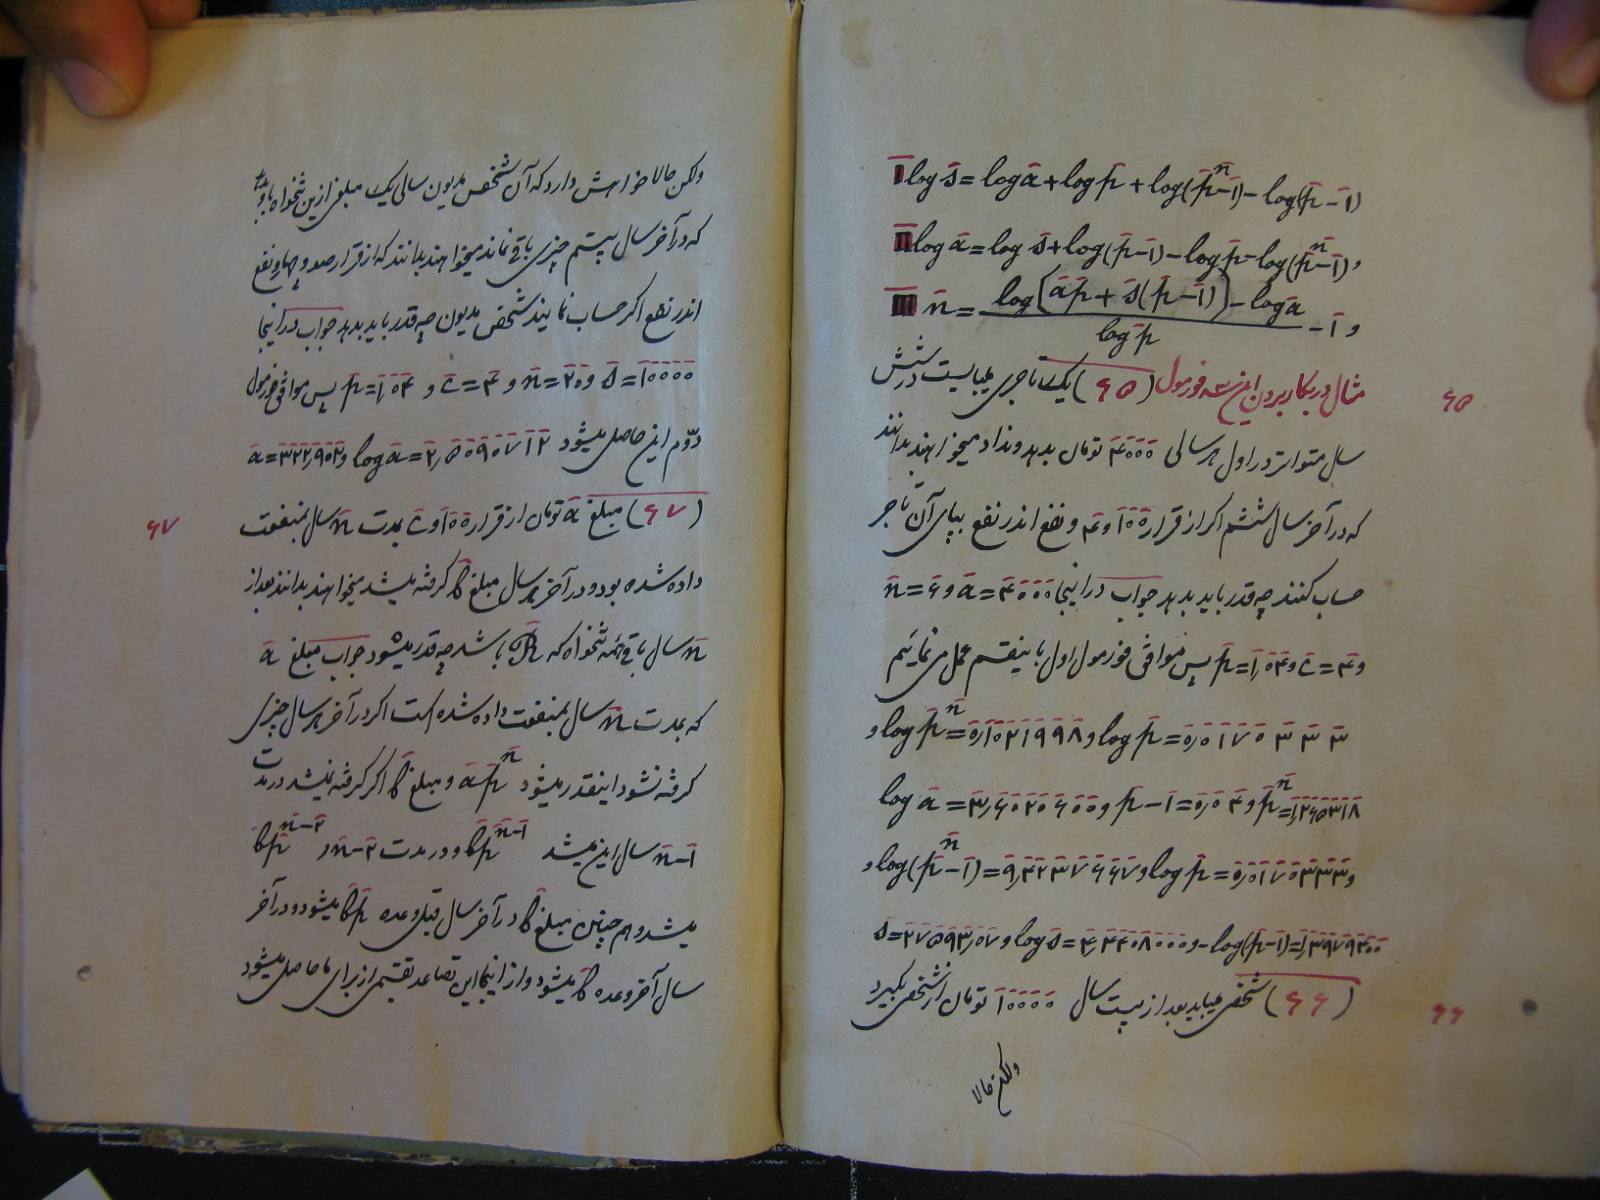 I log s = log a + log p + log(pⁿ-1) - log(p-1)
II log a = log s + log(p-1) - log p - log(pⁿ-1) و
III n = log[ap + s(p-1)] - log a / log p - 1 و
مثال در بکار بردن این سه فورمول (۶۵) یک تاجری میبایست در شش
۶۵
سال متواتر در اول هر سالی ۴۰۰۰ تومان بدهد و نداد میخواهند بدانند
که در آخر سال ششم اگر از قرار ۱۰۰ و ۴ و نفع اندر نفع بپای آن تاجر
حساب کنند چه قدر باید بدهد جواب در اینجا a=۴۰۰۰ و n=۶
و c=۴ و p=۱٫۰۴ پس موافق فورمول اول باینقسم عمل می نمائیم
log p = ۰٫۰۱۷۰۳۳۳ و log pⁿ = ۰٫۱۰۲۱۹۹۸ و
pⁿ = ۱٫۲۶۵۳۱۸ و p-1 = ۰٫۰۴ و log a = ۳٫۶۰۲۰۶۰۰
و log p = ۰٫۰۱۷۰۳۳۳ و log(pⁿ-1) = ۹٫۴۲۳۷۶۶۷ و
-log(p-1) = ۱٫۳۹۷۹۴۰۰ و log s = ۴٫۴۴۰۸۰۰۰ و s = ۲۷۵۹۳٫۰۷
(۶۶) شخصی میباید بعد از بیست سال ۱۰۰۰۰ تومان از شخصی بگیرد
۶۶
ولکن حالا
ولکن حالا خواهش دارد که آن شخص مدیون سالی یک مبلغی ازین تنخواه باو بدهد
که در آخر سال بیستم چیزی باقی نماند میخواهند بدانند که از قرار صد و چهار و نفع
اندر نفع اگر حساب نمایند شخص مدیون چه قدر باید بدهد جواب در اینجا
s=۱۰۰۰۰ و n=۲۰ و c=۴ و p=۱٫۰۴ پس موافق فورمول
دوّم این حاصل میشود log a = ۲٫۵۰۹۰۷۱۲ و a=۳۲۲٫۹۰۲
(۶۷) مبلغ a تومان از قرار ۱۰۰ و c بمدت n سال بمنفعت
۶۷
داده شده بود و در آخر هر سال مبلغ گرفته میشد میخواهند بدانند بعد از
n سال باقی تنخواه که R باشد چه قدر میشود جواب مبلغ a
که بمدت n سال بمنفعت داده شده است اگر در آخر هر سال چیزی
گرفته نشود اینقدر میشود apⁿ و مبلغ اگر گرفته نمیشد در مدت
n-1 سال این میشد pⁿ⁻¹ و در مدت n-۲ و pⁿ⁻²
میشد و هم چنین مبلغ در آخر سال قبل وعده p میشود و در آخر
سال آخر وعده میشود و از اینجا این تصاعد تقسیمی از برای ما حاصل میشود